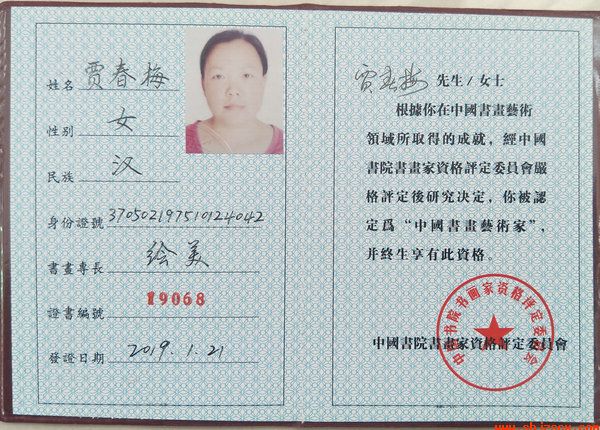 姓名 贾春梅
性别 女
民族 汉
身份證號 370502197510124042
書畫專長 绘美
證書編號 19068
發證日期 2019.1.21
贾春梅 先生/女士
根據你在中國書畫藝術
領域所取得的成就，經中國
書院書畫家資格評定委員會嚴
格評定後研究决定，你被認
定爲“中國書畫藝術家”，
并終生享有此資格。
中國書院書畫家資格評定委員會
中国书院书画家资格评定委员会